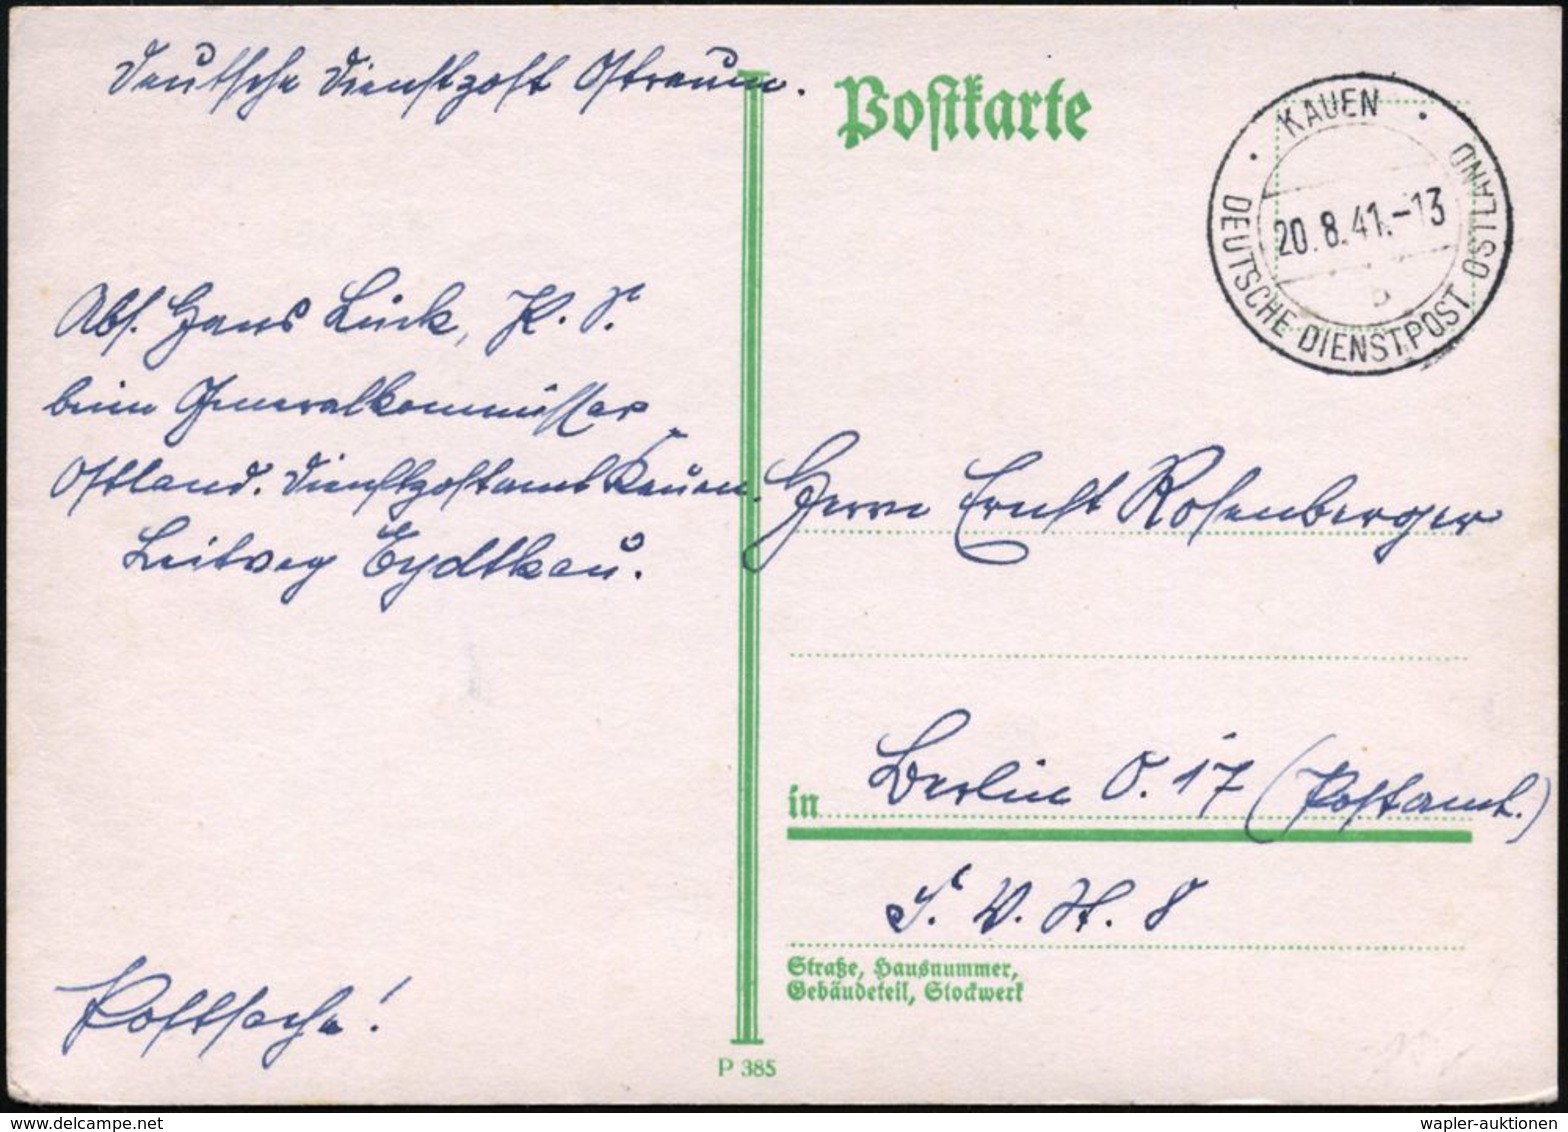 Deutsche Dienstpost Ostraum.
Postkarte
KAUEN
20.8.41.-13
b
DEUTSCHE DIENSTPOST OSTLAND
Abs. Hans Lück, K. S.
beim Generalkommissar
Ostland. Dienstpostamt Kauen.
Leitweg Eydtkau.
Herrn Ernst Rosenberger
in Berlin O. 17 (Postamt.)
S. V. H. 8
Straße, Hausnummer,
Gebäudeteil, Stockwerk
Postsache!
P 385
wapler-auktionen